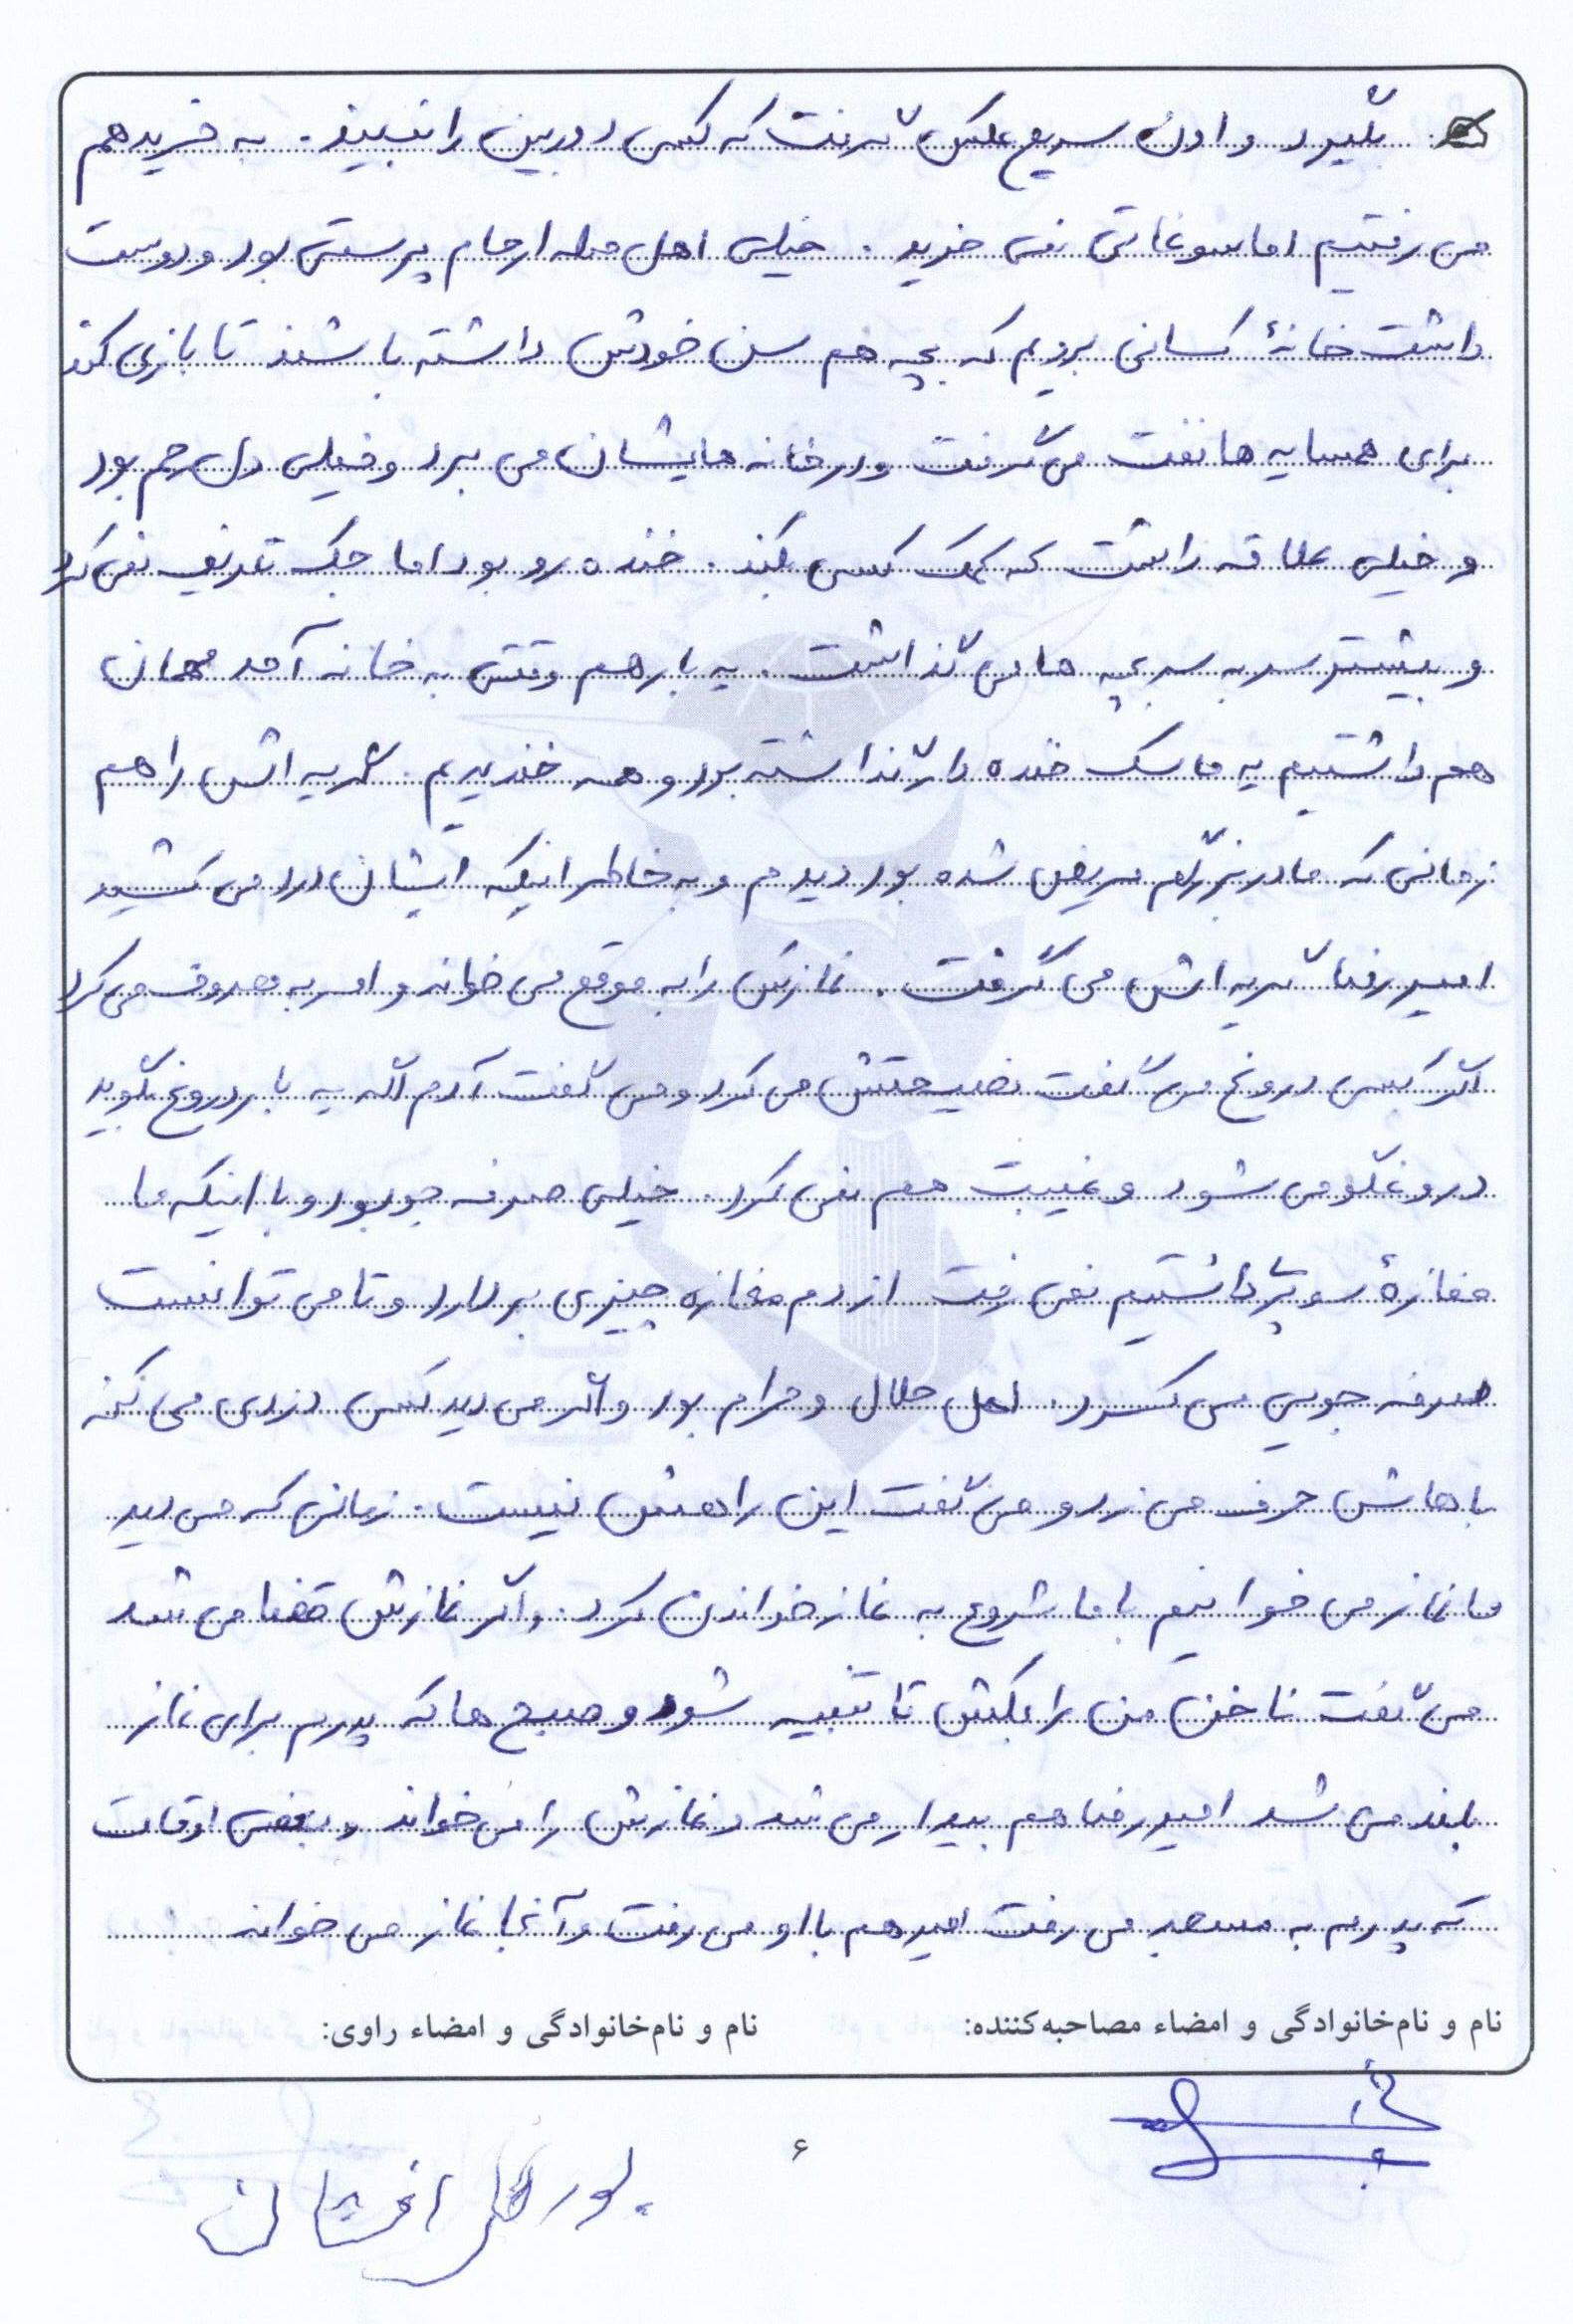 بگیرد و اون سریع عکس گرفت که کسی دوربین را نبیند. به خرید هم
می رفتیم اما سوغاتی نمی خرید. خیلی اهل صله ارحام پرستی بود و دوست
داشت خانهٔ کسانی برویم که بچه هم سن خودش داشته باشند تا بازی کند
برای همسایه ها نفت می گرفت و در خانه هایشان می برد و خیلی دل رحم بود
و خیلی علاقه داشت که کمک کسی بکند. خنده رو بود اما جک تعریف نمی کرد
و بیشتر سر به سر بچه ها می گذاشت. یه بار هم وقتی به خانه آمد مهمان
هم داشتیم یه ماسک خنده دار گذاشته بود و همه خندیدیم. گریه اش را هم
زمانی که مادربزرگم مریض شده بود دیدم و به خاطر اینکه ایشان درد می کشید
امیررضا گریه اش می گرفت. نمازش را به موقع می خواند و امر به معروف می کرد
اگر کسی دروغ می گفت نصیحتش می کرد و می گفت آدم اگه یه بار دروغ بگوید
دروغگو می شود و غیبت هم نمی کرد. خیلی صرفه جو بود و با اینکه ما
مغازهٔ سوپر داشتیم نمی رفت از دم مغازه چیزی بردارد و تا می توانست
صرفه جویی می کرد. اهل حلال و حرام بود و اگر می دید کسی دزدی می کنه
باهاش حرف می زد و می گفت این راهش نیست. زمانی که می دید
ما نماز می خوانیم با ما شروع به نماز خواندن کرد. و اگر نمازش قضا می شد
می گفت ناخن من را بکش تا تنبیه شود و صبح ها که پدرم برای نماز
بلند می شد امیررضا هم بیدار می شد و نمازش را می خواند و بعضی اوقات
که پدرم به مسجد می رفت امیر هم با او می رفت و آنجا نماز می خواند
نام و نام‌خانوادگی و امضاء مصاحبه‌کننده: نام و نام‌خانوادگی و امضاء راوی:
۶
پور گل افشان